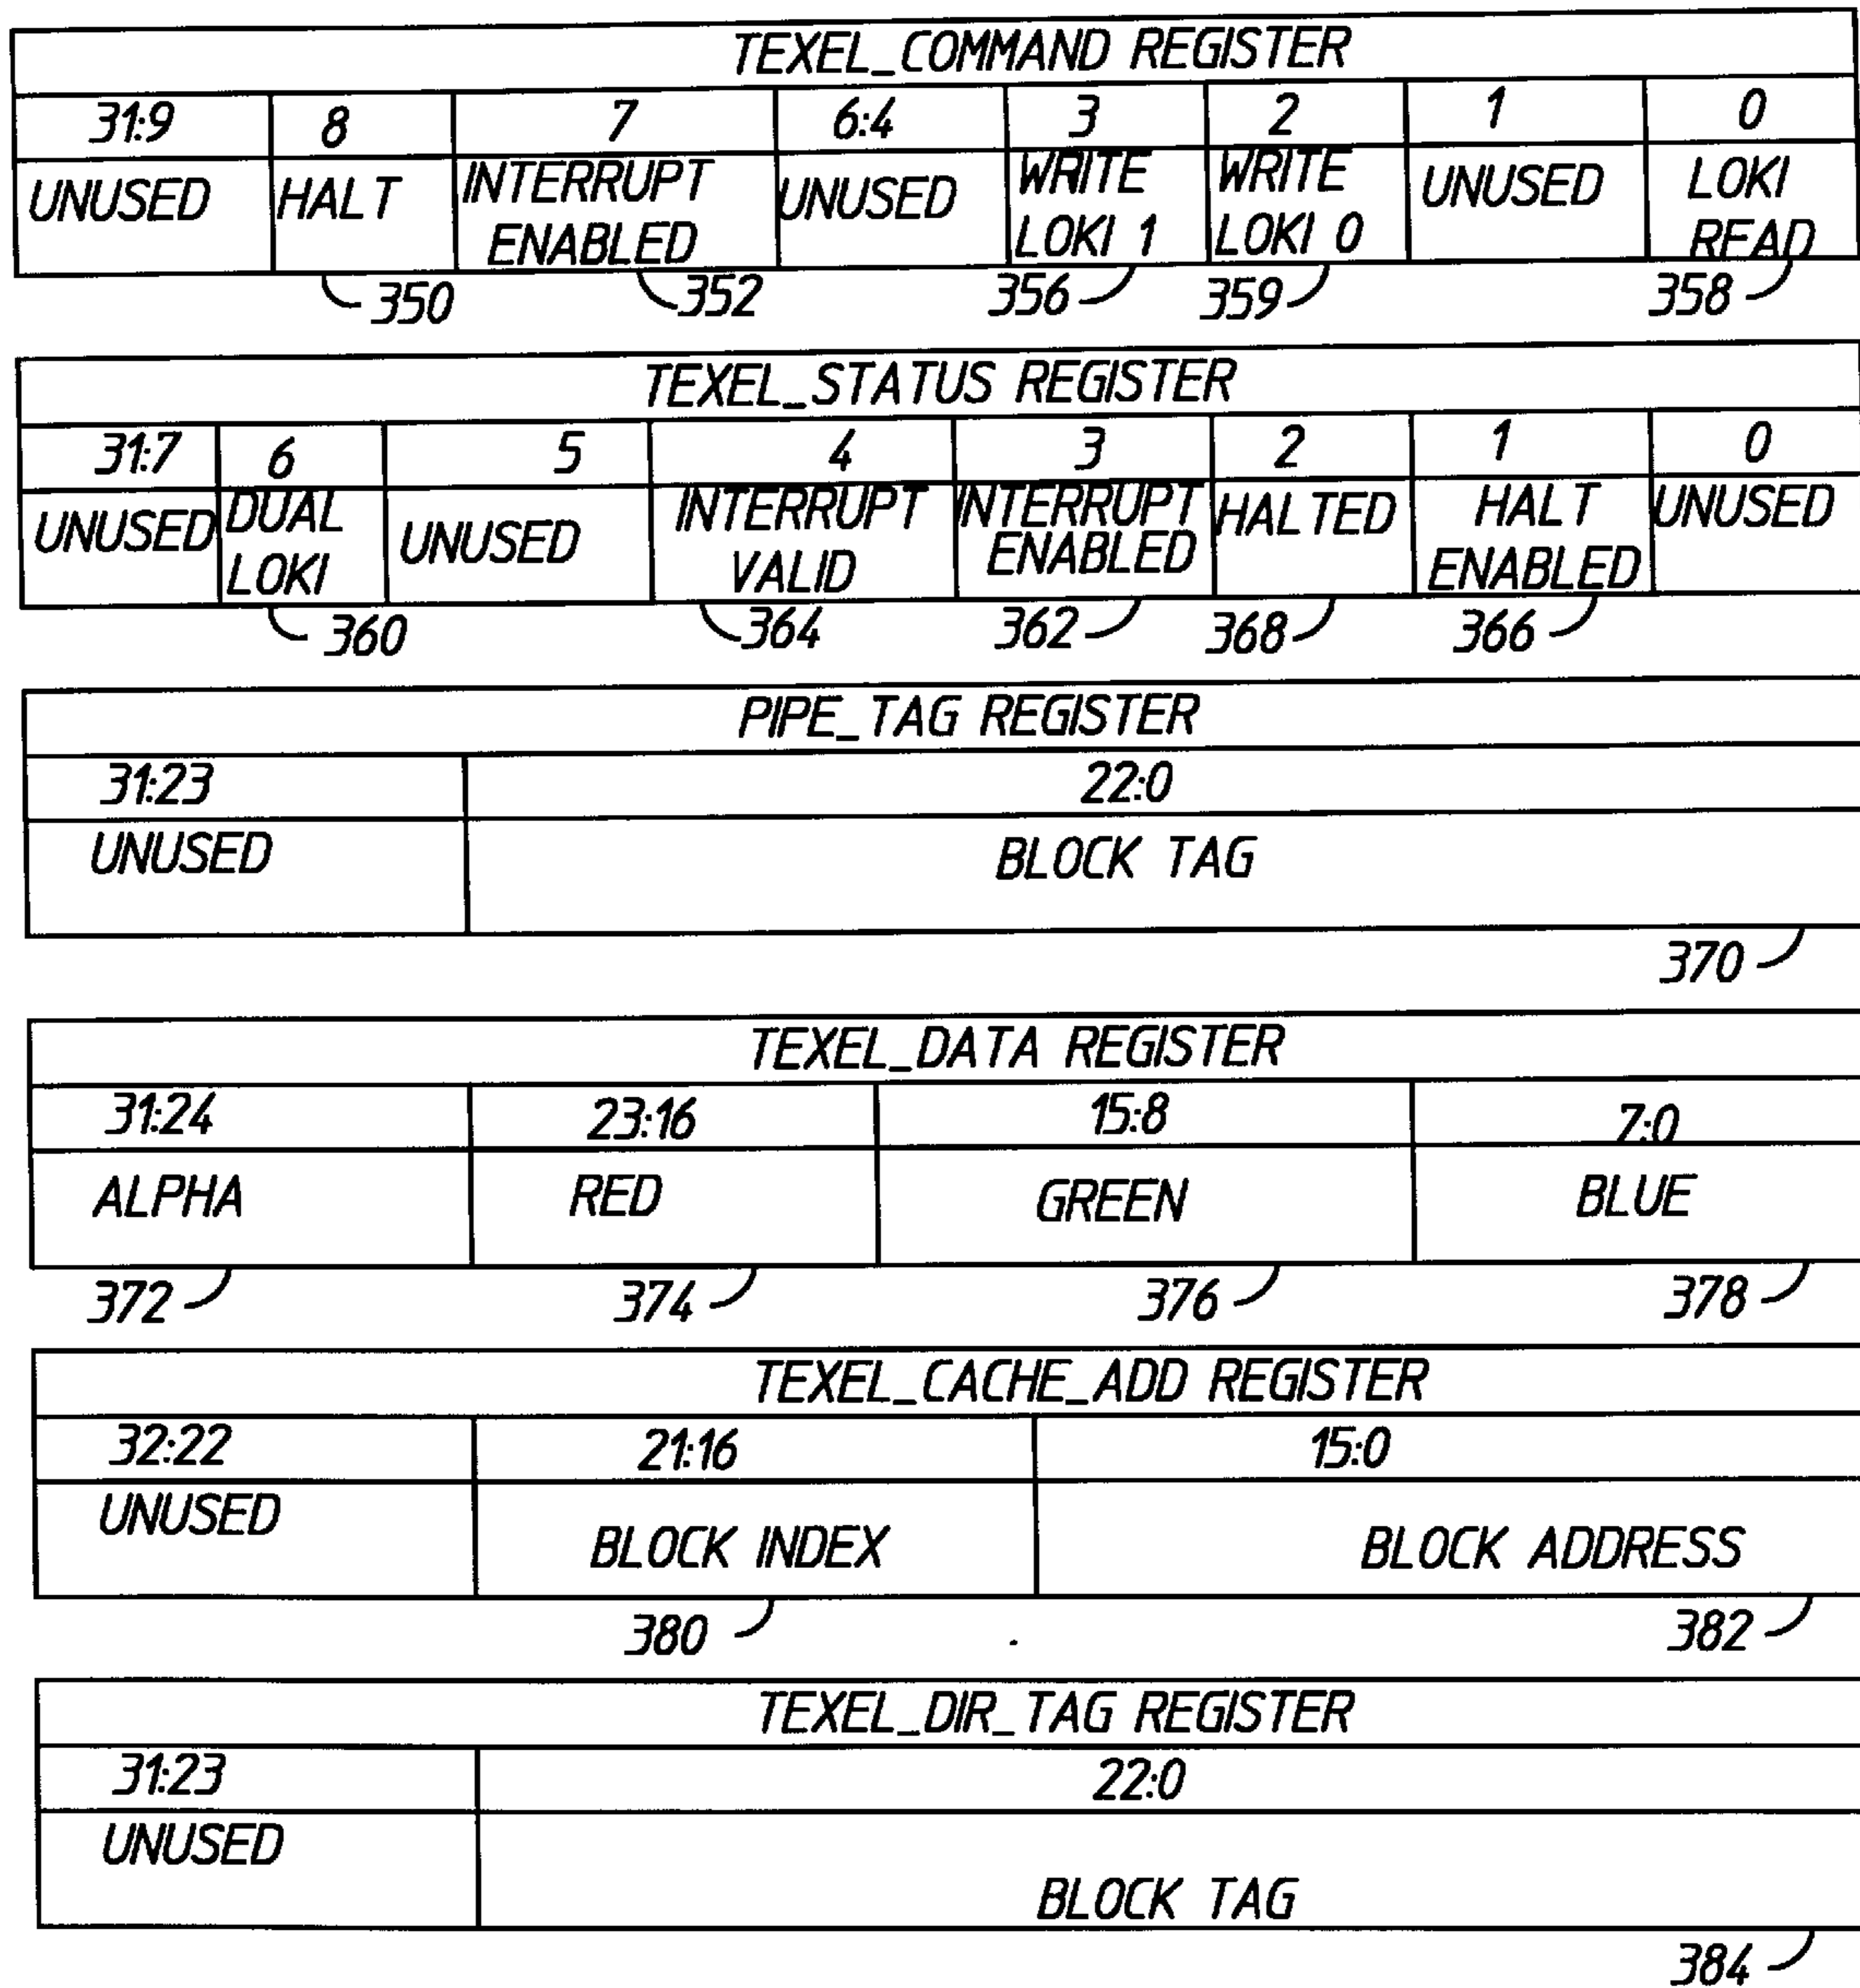 TEXEL_COMMAND REGISTER
31:9 8 7 6:4 3 2 1 0
UNUSED HALT INTERRUPT ENABLED UNUSED WRITE LOKI 1 WRITE LOKI 0 UNUSED LOKI READ
350 352 356 359 358
TEXEL_STATUS REGISTER
31:7 6 5 4 3 2 1 0
UNUSED DUAL LOKI UNUSED INTERRUPT VALID INTERRUPT ENABLED HALTED HALT ENABLED UNUSED
360 364 362 368 366
PIPE_TAG REGISTER
31:23 22:0
UNUSED BLOCK TAG
370
TEXEL_DATA REGISTER
31:24 23:16 15:8 7:0
ALPHA RED GREEN BLUE
372 374 376 378
TEXEL_CACHE_ADD REGISTER
32:22 21:16 15:0
UNUSED BLOCK INDEX BLOCK ADDRESS
380 382
TEXEL_DIR_TAG REGISTER
31:23 22:0
UNUSED BLOCK TAG
384